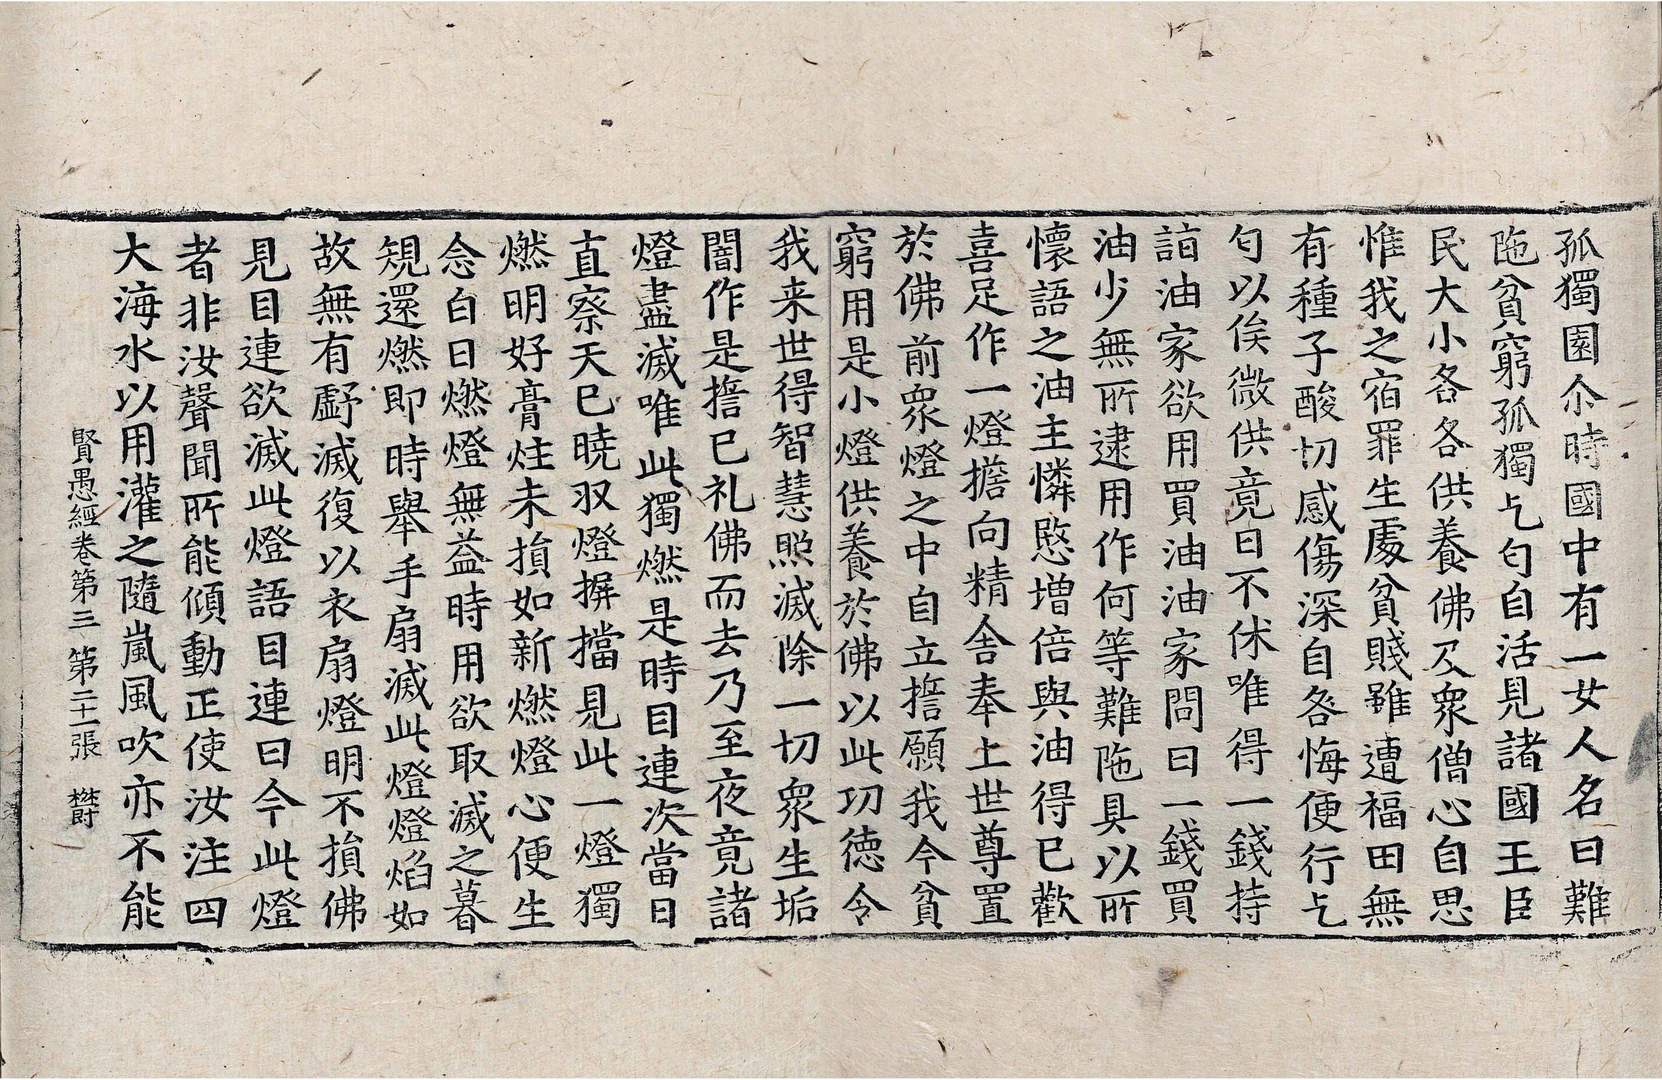 孤獨園尒時國中有一女人名曰難
陁貧窮孤獨乞匄自活見諸國王臣
民大小各各供養佛及衆僧心自思
惟我之宿罪生處貧賤雖遭福田無
有種子酸切感傷深自咎悔便行乞
匄以俟微供竟日不休唯得一錢持
詣油家欲用買油油家問曰一錢買
油少無所逮用作何等難陁具以所
懷語之油主憐愍增倍與油得已歡
喜足作一燈擔向精舍奉上世尊置
於佛前衆燈之中自立擔願我今貧
窮用是小燈供養於佛以此功德令
我来世得智慧照滅除一切衆生垢
闇作是擔已礼佛而去乃至夜竟諸
燈盡滅唯此獨燃是時目連次當日
直察天已曉収燈摒擋見此一燈獨
燃明好膏炷未損如新燃燈心便生
念白日燃燈無益時用欲取滅之暮
規還燃即時舉手扇滅此燈燈焰如
故無有虧滅復以衣扇燈明不損佛
見目連欲滅此燈語目連曰今此燈
者非汝聲聞所能傾動正使汝注四
大海水以用灌之隨嵐風吹亦不能
賢愚經卷第三 第二十一張 欝